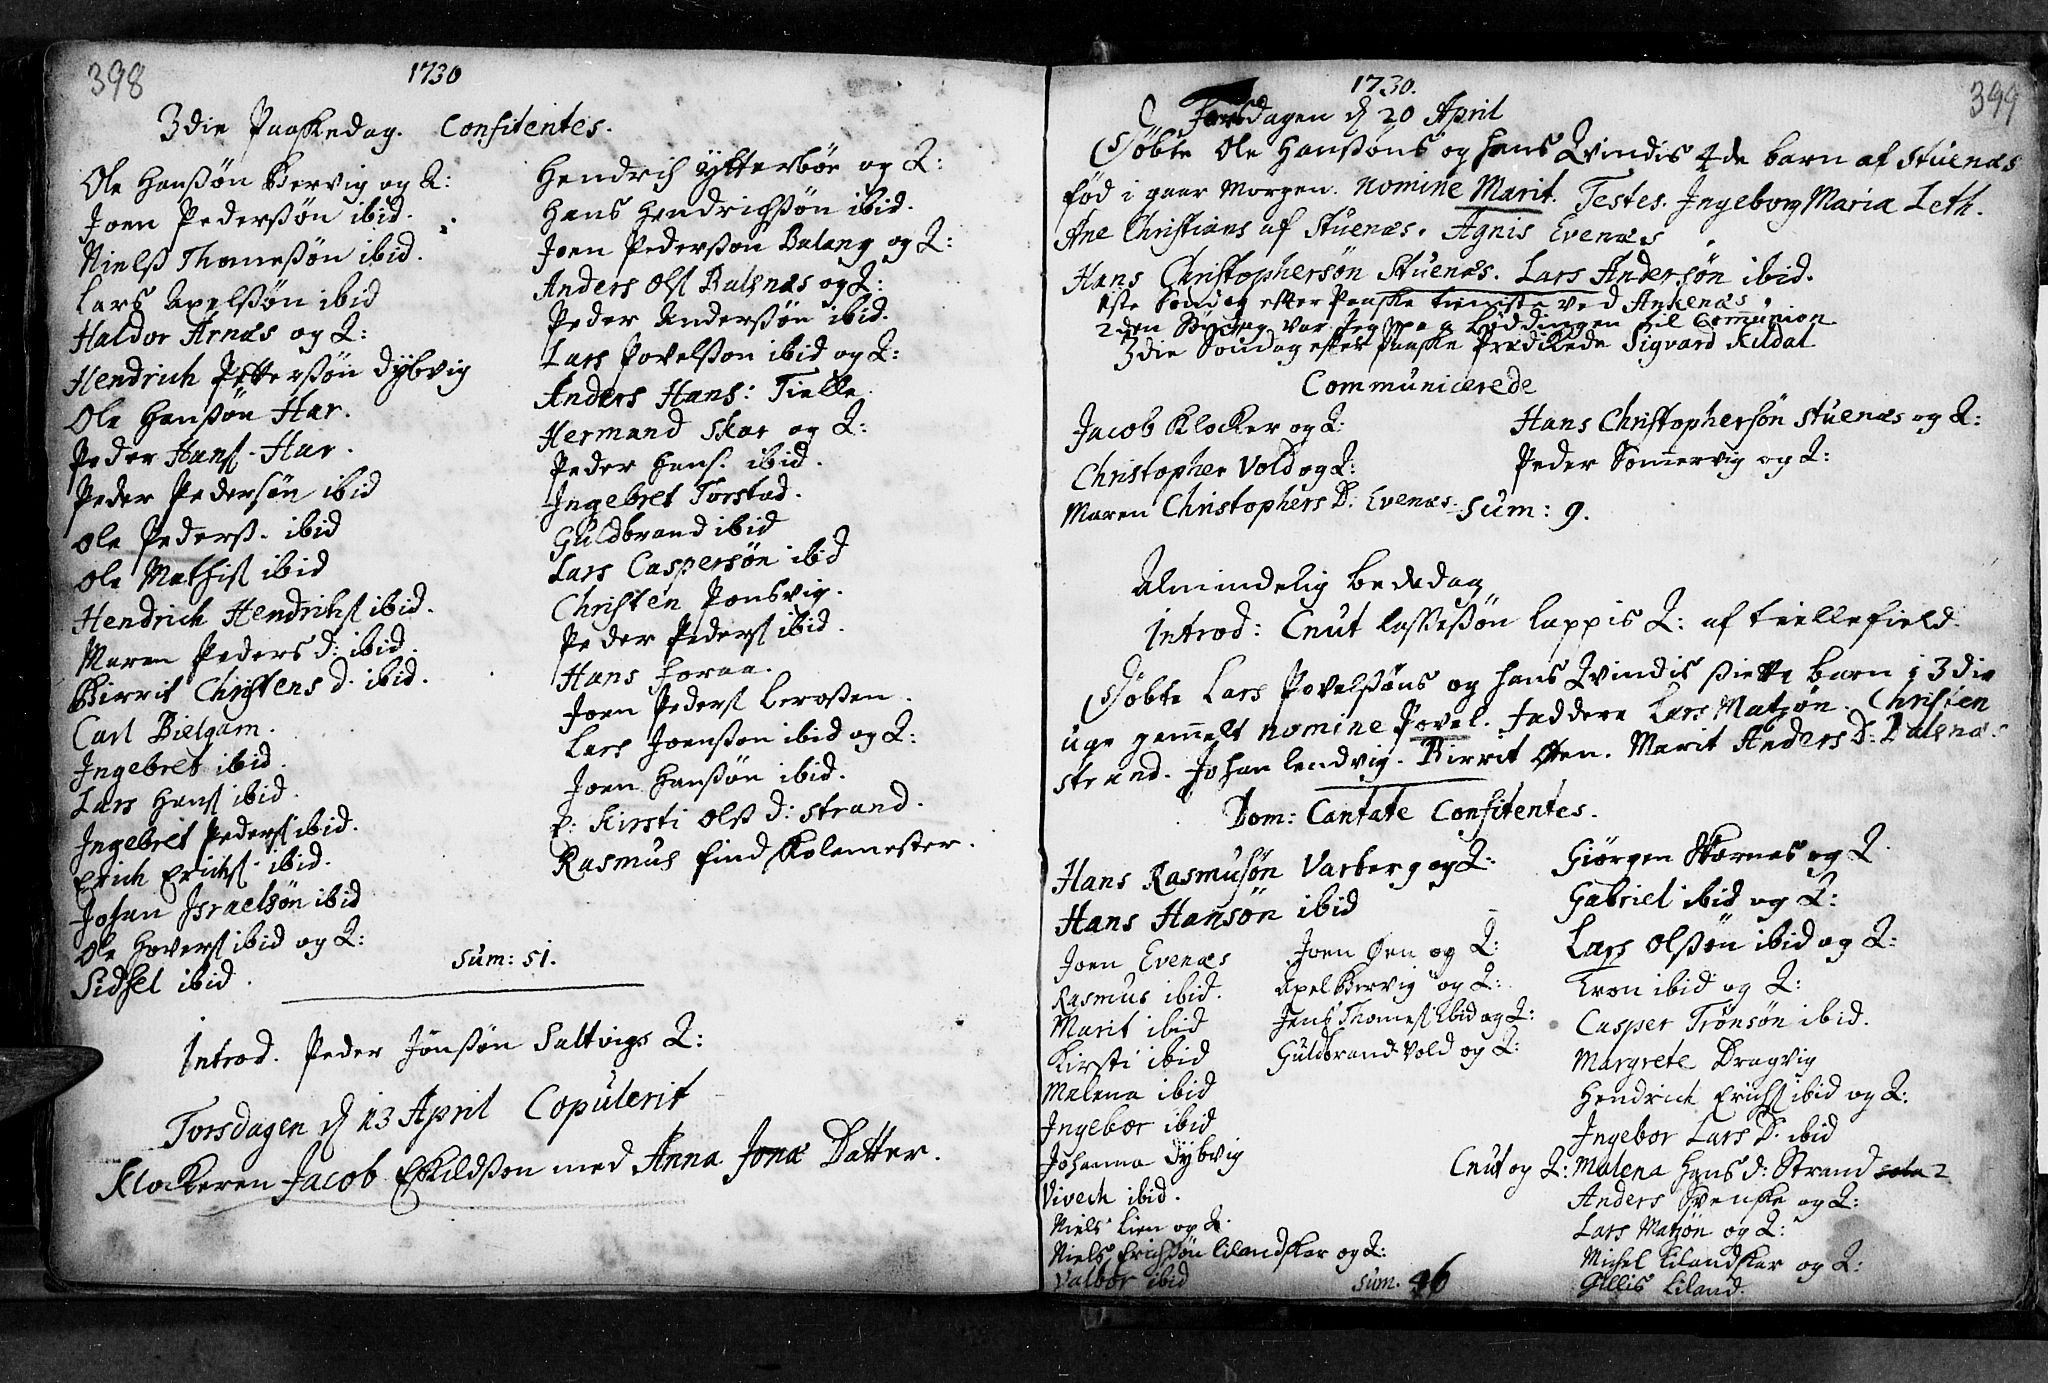 398
1730
3die Paaskedag. Confitentes.
Ole Hanssøn Bervig og Q:
Joen Pederssøn ibid.
Nielss Thomessøn ibid.
Lars Axelssøn ibid
Haldor Arnæs og Q:
Hendrich Petterssøn Dÿbvig
Ole Hanssøn Har.
Peder Hans. Har.
Peder Pedersøn ibid
Ole Pederss. ibid
Ole Mathis ibid
Hendrich Hendrichs ibid.
Maren Peders d: ibid.
Birrit Christens d. ibid.
Carl Bielgam.
Ingebret ibid.
Lars Hans ibid.
Ingebret Peders ibid.
Erich Erichs. ibid.
Johan Israelsøn ibid
Ole Havers ibid og Q:
Sidsel ibid.
Hendrich Ÿtterbör og Q:
Hans Hendrichssøn ibid.
Joen Pederssøn Balang og Q:
Anders Ols Balsnæs og Q:
Peder Anderssøn ibid.
Lars Povelssøn ibid og Q:
Anders Hans: Tielle
Hermand Skar og Q:
Peder Hans. ibid.
Ingebret Torstad.
Guldbrand ibid
Lars Caspersøn ibid
Christen Ponsvig.
Peder Peders ibid.
Hans Foraa.
Joen Peders Lerossen.
Lars Joenssøn ibid og Q:
Joen Hanssøn ibid.
P: Kirsti Ols d: Strand.
Rasmus Find skolemester.
Sum: 51.
Introd. Peder Jonssøn Saltvigs Q:
Torsdagen d 13 April Copulerit
Klockeren Jacob Eskildssøn med Anna Jonæ Datter.
399
1730.
Torsdagen d 20 April
Døbte Ole Hanssøns og hans Qvindis 4de barn af Stuenæs
fød i gaar Morgen. nomine Marit. Testes. Ingeborg Maria Leth.
Ane Christians af Stuenæs. Agnis Evenæs
Hans Christophersøn Stuenæs. Lars Andersøn ibid.
1ste Søndag efter Paaske tieniste ved Ankenæs
2den Søndag var Jeg paa Løddingen til Communion
3die Søndag efter Paaske Prædikede Sigvard Kildal
Communicerede
Jacob Klocker og Q:
Christopher Vold og Q:
Maren Christophers D: Evenæs.
Hans Christophersøn Stuenæs og Q:
Peder Somervig og Q:
Sum: 9.
Almindelig Bededag
Introd: Cnut Lassessøn Lappis Q: af Tiellefield.
Døbte Lars Povelssøns og hans Qvindis siette barn i 3die
uge gamelt nomine Povel. Faddere Lars Matzøn. Christen
Strand. Johan Lendvig. Birrit Øen. Marit Anders D: Balsnæs
Dom: Cantate Confitentes.
Hans Rasmusøn Varberg og Q:
Hans Hansøn ibid
Joen Evenæs
Rasmus ibid.
Marit ibid
Kirsti ibid
Malena ibid
Ingebor ibid
Johanna Dÿbvig
Vivech ibid.
Niels Lien og Q.
Niels Erichssøn Lilandskar og Q:
Valbor ibid
Joen Øen og Q:
Axel Bervig og Q:
Jens Thomes ibid og Q:
Guldbrand Vold og Q:
Sum. 46
Giørgen Skarnæs og Q.
Gabriel ibid og Q:
Lars Olssøn ibid og Q:
Tron ibid og Q:
Casper Trønsøn ibid.
Margrete Dragvig
Hendrich Erichs ibid og Q:
Ingebor Lars D. ibid
Cnut og Q: Malena Hans d: Strand 2
Anders Svenske og Q:
Lars Matzøn og Q:
Michel Lilandskar og Q:
Gillis Liland.